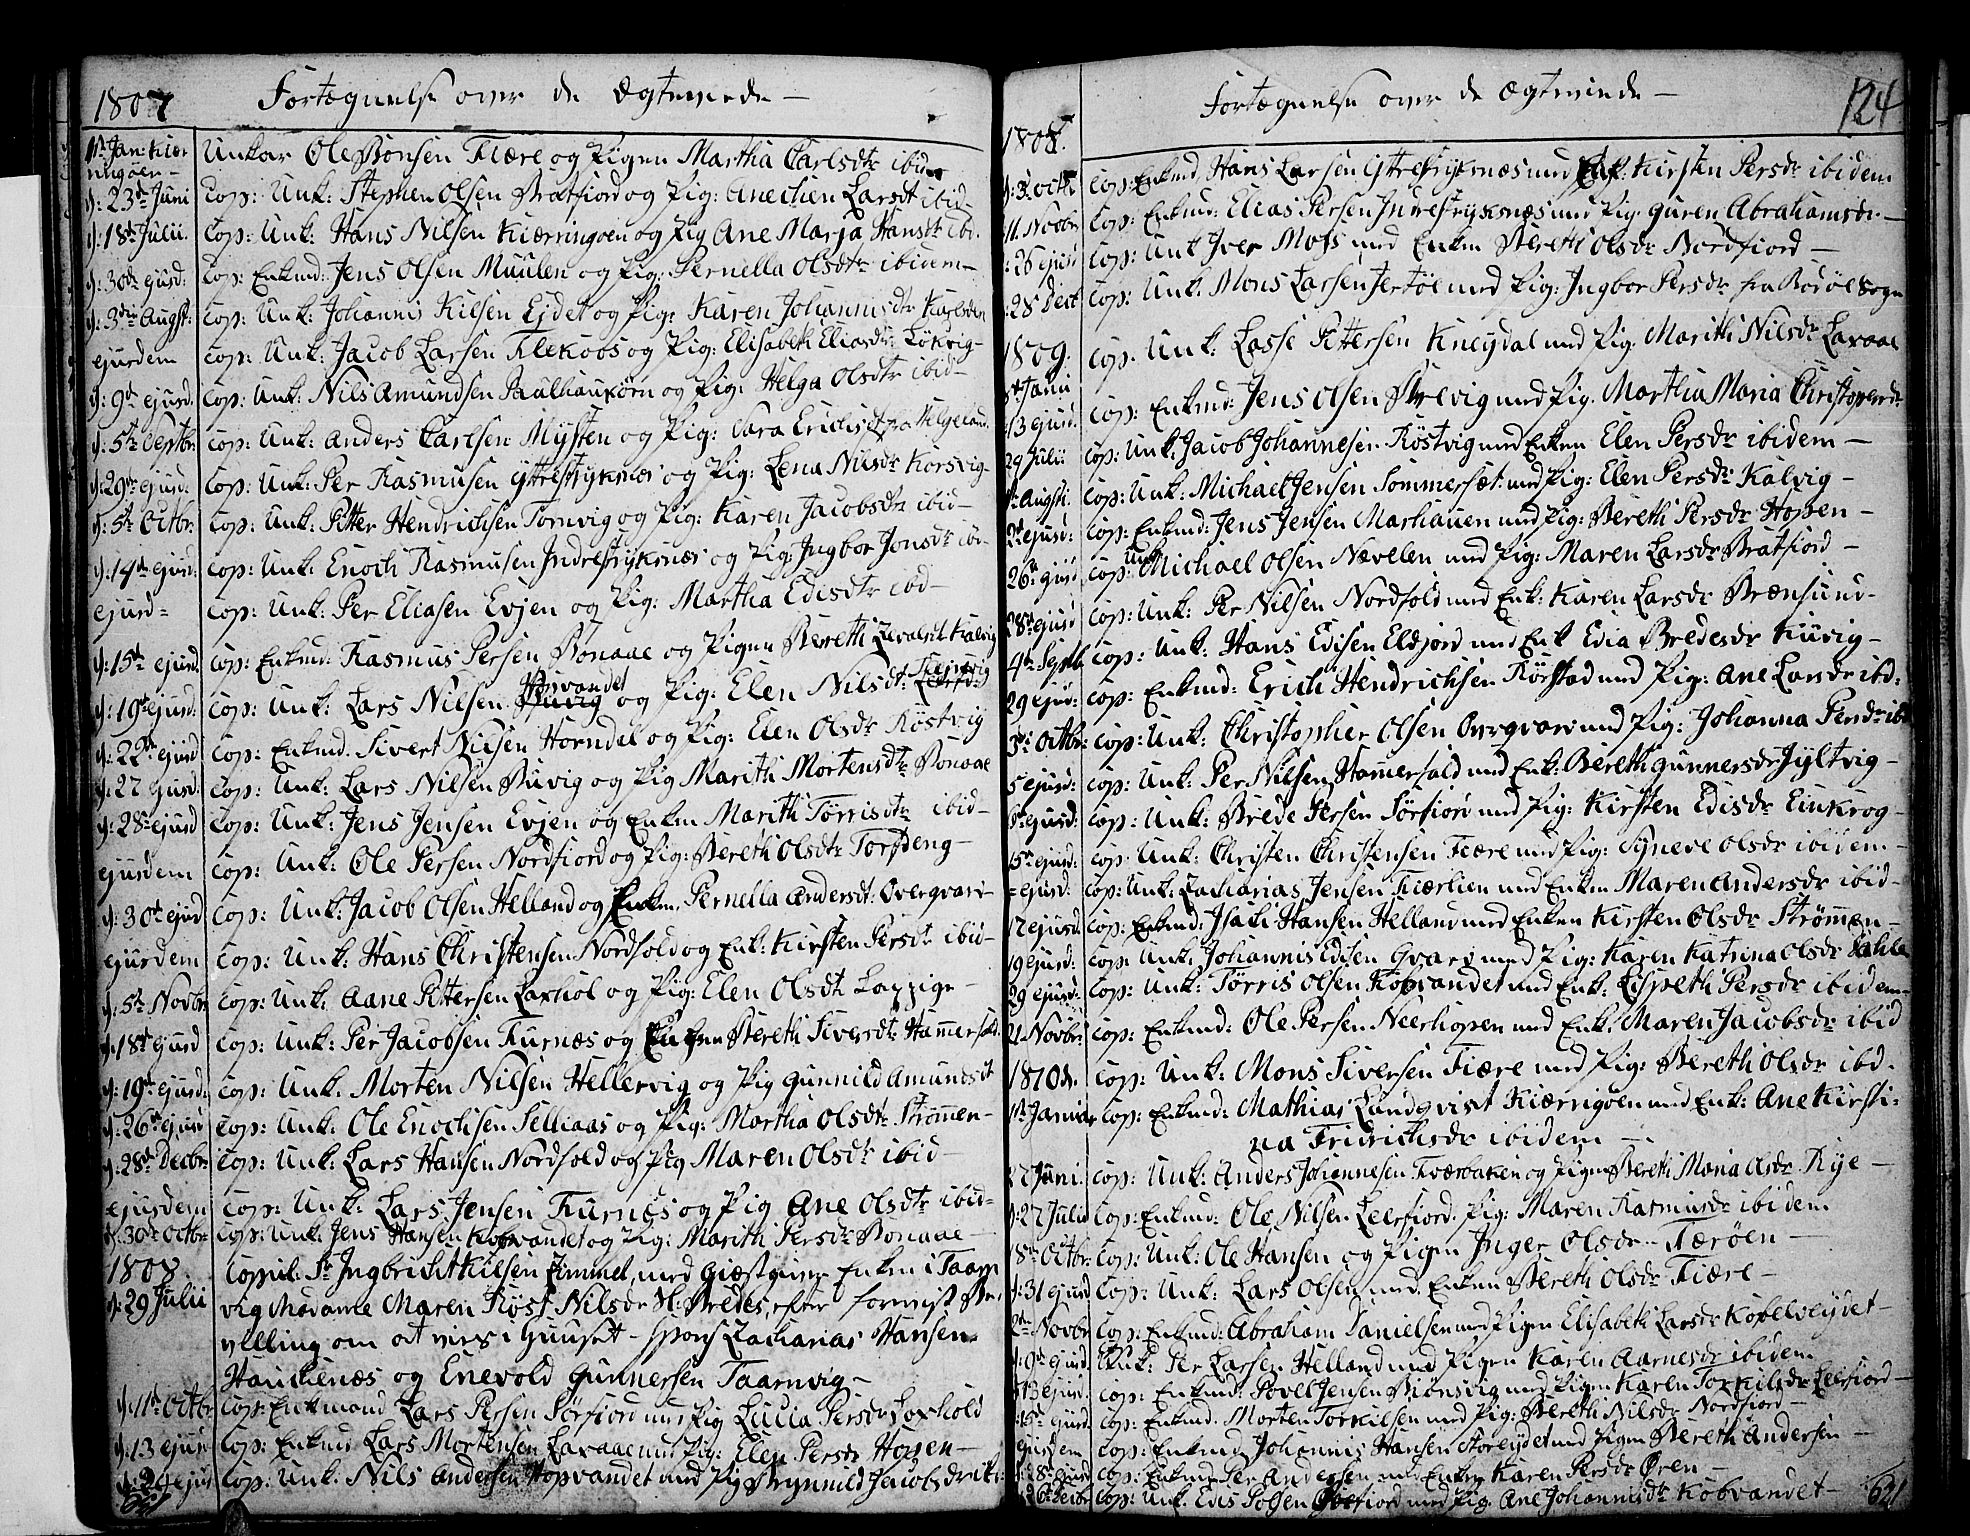 1807 Fortegnelse over de Ægteviede —
11te Jan: Kiær Unkar Ole Bonsen Fiære og Pigen Martha Carlsdtr ibidem
ringøen —
d: 23de Juni Cop: Unk: Stephen Olsen Bratfiord og Pig: Anechen Larsdt ibid —
d: 18de Julii. Cop: Unk: Hans Nilsen Kiærringøen og Pig Ane Marja Hansdtr ibi.
d: 30de ejusd: Cop: Enkmd: Jens Olsen Muulen og Pig: Pernella Olsdtr ibidem —
d: 3die Augst: Cop: Unk: Johannis Kilsen Ejdet og Pig: Karen Johannisdtr Karlsøen
ejusdem Cop: Unk: Jacob Larsen Flekoos og Pig: Elisabeth Eliasdtr: Løkvig —
d: 9de ejusd. Cop: Unk: Nils Amundsen Paalhaukørn og Pig: Helga Olsdtr ibid —
d: 5te Septbr: Cop: Unk: Anders Carlsen Mysten og Pig: Sara Erichsdt fra Helgeland
d: 29de ejusd: Cop: Unk: Per Rasmusen Yttrestryksnæs og Pig: Lena Nilsdr Korsvig —
d: 5te Octbr: Cop: Unk: Pitter Hendrichsen Tornvig og Pig: Karen Jacobsdtr ibid —
d: 14de ejusd: Cop: Unk: Enoch Rasmusen Indrestryksnæs og Pig: Ingbor Jonsdtr ibi —
ejusd = Cop: Unk: Per Eliasen Evjen og Pig: Martha Edisdtr ibd —
d: 15de ejusd. Cop: Enkmd: Rasmus Persen Bonaae og Pigen Bereth Zevalsdt Kalvig
d: 19de ejusd: Cop: Unk: Lars Nilsen Hopvandet og Pig: Elen Nilsdt:
d: 22de ejusd Cop: Enkmd. Sivert Nilsen Horndal og Pig: Elen Olsdtr Røstvig
d: 27 ejusd. Cop: Unk: Lars Nilsen Buvig og Pig Marith Mortensdtr Bonaae
d: 28de ejusd Cop: Unk: Jens Jensen Evjen og Enken Marith Tørrisdtr ibid —
ejusdem Cop: Unk: Ole Persen Nordfiord og Pig: Bereth Olsdtr Torsdeng —
d: 30te ejusd Cop: Unk: Jacob Olsen Helland og Enken Pernella Andersdt: Overqvari —
ejusdem Cop: Unk: Hans Christensen Nordfold og Enk: Kirsten Persdtr ibid —
d: 5te Novbr Cop: Unk: Aane Pittersen Laxhol og Pig: Elen Olsdt Lappige —
d: 18de ejusd Cop: Unk: Per Jacobsen Furnæs og Enken Bereth Siversdtr Hammerfald.
d: 19de ejusd: Cop: Unk: Morten Nilsen Hellervig og Pig Gunnild Amundsdt
d: 26de ejusd Cop: Unk: Ole Enochsen Selliaas og Pig: Martha Olsdtr Strømmen —
d: 28de Decbr: Cop: Unk: Lars Hansen Nordfold og Pig Maren Olsdtr ibid —
ejusdem Cop: Unk: Lars Jensen Furnæs og Pig Ane Olsdtr ibid =
d. 30de Octbr: Cop: Unk: Jens Hansen Kobvandet og Pig: Marith Persdtr Bonaae —
1808 Copul. Sr Ingbricht Kilsen Zimmel, med Giæstgiver Enken i Taarn
d: 29 Julii vig Madame Maren Røst Nilsdr Sl: Bredes, efter forrigst Be,
villing om at vies i Huuset — spons Zacharias Hansen
Hauchnæs og Enevold Gunnersen Taarnvig —
d: 11te Octbr Cop: Enkmand Lars Persen Sørfiord med Pig Lucia Persdr Laxhold
d: 13 ejusd Cop: Enkmd Lars Mortensen Laxaae med Pig: Elen Persdr Hopen —
d: 24 ejusd Cop: Unk: Nils Andersen Hopvandet med Pig Brynnild Jacobsdr ibi:
Fortægnelse over de Ægteviede — 124
1808.
d: 3 Octb Cop: Enkmd. Hans Larsen Yttrestryksnæs med Enk. Kirsten Persdr ibidem
11. Novbr Cop: Enkmd: Elias Persen Indrestryksnæs med Pig: Guren Abrahamsdr. —
26 ejusd Cop: Unk Iver Mons med Enken Bereth Olsdr Nordfiord —
28 Decb Cop: Unk: Mons Larsen Sertøe med Pig: Ingbor Persdr fra Bodøe Sogn
1809. Cop: Unk: Lasse Pittersen Kneydal med Pig. Marith Nilsdr Laxaae
5te Janu
13 ejusd. Cop: Enkmd: Jens Olsen Skrevig med Pig. Martha Maria Christopersdr
29 Julii Cop: Unk: Jacob Johannesen Røstvig med Enken Elen Persdr ibidem —
1te Augsti. Cop: Unk: Michael Jensen Sommersæt med Pig: Elen Persdr Kalvig —
2de ejusd: Cop: Enkmd: Jens Jensen Marhauen med Pig: Bereth Persdr Hopen —
26de ejusd Cop: Unk Michael Olsen Nævelen med Pig: Maren Larsdr Bratfiord —
28de ejusd Cop: Unk: Per Nilsen Nordfold med Enk: Karen Larsdr Brænsund —
4de Septb. Cop: Unk: Hans Edisen Eldjord med Enk Edia Bredesdr Kuvig —
29 ejusd: Cop: Enkmd: Erich Hendrichsen Rørstad med Pig: Ane Larsdr ibd:
3de Octbr: Cop: Unk: Christopher Olsen Overqvari med Pig: Johanna Persdr ibd
5 ejusd: Cop: Unk: Per Nilsen Hamerfald med Enk: Bereth Gunnersdr Jyltvig —
6te ejusd: Cop: Unk: Brede Persen Sørfiord med Pig: Kirsten Edisdr Einkrog —
15de ejusd: Cop: Unk: Christen Christensen Fiære med Pig: Syneve Olsdr ibidem —
= ejusd: Cop: Unk: Zacharias Jensen Fiærlien med Enken Maren Andersdr ibid —
17 ejusd Cop: Enkmd: Isach Hansen Helland med Enken Kirsten Olsdr Strømmen —
19 ejusd: Cop: Unk: Johannis Edisen Qvari med Pig: Karen Katrina Olsdr Dahle
29 ejusd: Cop: Unk: Tørris Olsen Kobvandet med Enk: Lispeth Persdr ibidem —
21 Novbr: Cop: Enkmd: Ole Persen Neerhopen med Enk: Maren Jacobsdr ibid
1810d. Cop: Unk: Mons Siversen Fiære med Pig: Bereth Olsdr ibd.
1te Januar Cop: Enkmd: Mathias Lundqvist Kiærrigøen med Enk: Ane Kirsti =
na Fridrichsdr ibidem —
27 Juni. Cop: Unk: Anders Johannesen Tværbakken og Pigen Bereth Maria Olsdr. Rye —
d: 27 Julii Cop: Enkmd: Ole Nilsen Leerfiord. Pig: Maren Rasmusdr ibidem
18de Octbr: Cop: Unk: Ole Hansen og Pigen Inger Olsdr — Færøen —
d: 31 ejusd Cop: Unk: Lars Olsen med Enken Bereth Olsdr Fiære —
2de Novbr Cop: Enkmd: Abraham Danielsen med Pigen Elisabeth Larsdr Kobelveydet —
d: 9de ejusd Unk: Per Larsen Helland med Pigen Karen Aarnesdr ibidem
d: 13 ejusd. Cop: Enkmd: Povel Jensen Biønsvig med Pigen Karen Torkilsdr Leerfiord —
d: 15de ejusd Cop: Enkmd: Morten Torkilsen med Pig: Bereth Nilsdr Nordfiord —
ejusdem Cop: Enkmd Johannis Hansen Storeydet med Pigen Bereth Andersen —
d: 28de ejusd Cop: Enkmd Per Andersen med Enken Karen Persdr Øren —
d: 26 Decbr Cop: Unk: Edis Polsen Øvrefiord med Pig: Ane Johannisdtr Kobvandet — 621